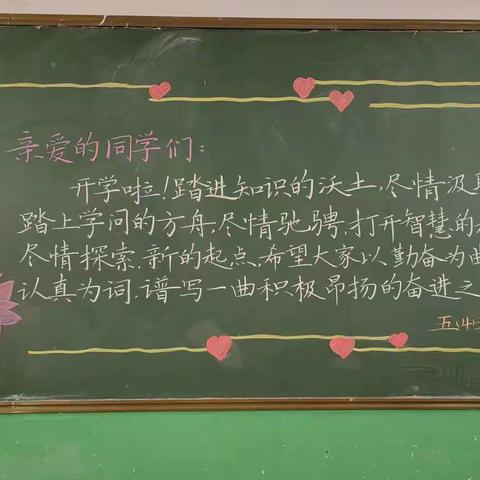 亲爱的同学们：
开学啦！踏进知识的沃土，尽情汲
踏上学问的方舟，尽情驰骋，打开智慧的
尽情探索，新的起点，希望大家以勤奋为曲
认真为词，谱写一曲积极昂扬的奋进之
五(4)